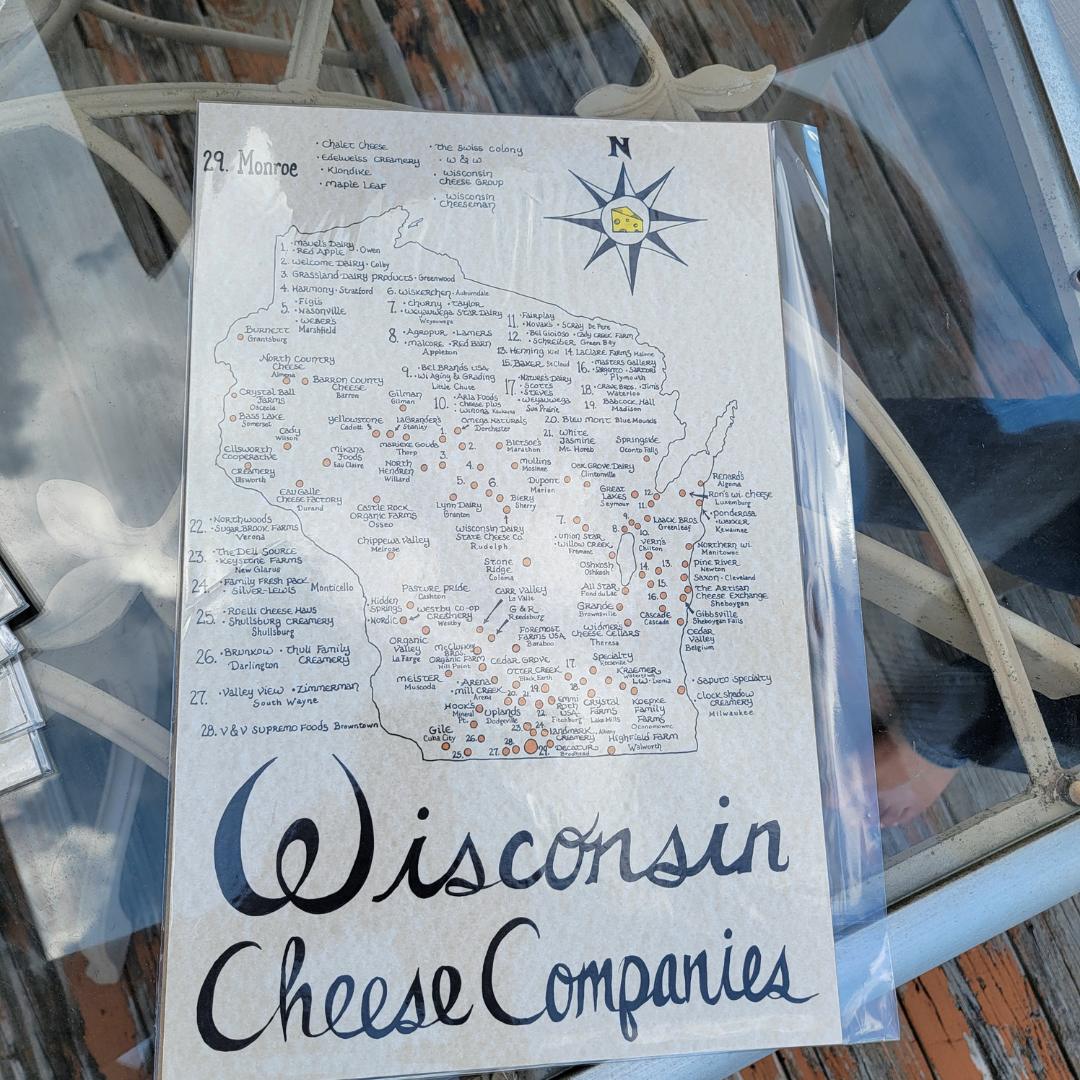 29. Monroe
• Chalet Cheese
• Edelweiss Creamery
• Klondike
• Maple Leaf
• The Swiss Colony
• W & W
• Wisconsin
Cheese Group
• Wisconsin
Cheeseman
N
1. • Mauel's Dairy
• Red Apple • Owen
2. Welcome Dairy • Colby
3. Grassland Dairy Products • Greenwood
4. Harmony • Stratford
5. • Figi's
• Nasonville
• Weber's
Marshfield
6. Wiskerchen • Auburndale
7. • Churny • Taylor
• Weyauwega Star Dairy
Weyauwega
8. • Agropur • Lamers
• Malcore • Red Barn
Appleton
9. • Bel Brands USA
• WI Aging & Grading
Little Chute
10. • Arla Foods
• Cheese Plus
• Winona Kaukauna
11. • Fairplay
• Novak's • Scray De Pere
12. • BelGioioso • Cady Creek Farm
• Schreiber Green Bay
13. Henning Kiel
14. LaClare Farms Malone
15. Baker St Cloud
16. • Masters Gallery
• Sargento • Sartori
Plymouth
17. • Nature's Dairy
• Scott's
• Steve's
• Weyauwega
Sun Prairie
18. • Crave Bros. • Jim's
Waterloo
19. Babcock Hall
Madison
20. Bleu Mont Blue Mounds
21. White
Jasmine
Mt. Horeb
Burnett
Grantsburg
North Country
Cheese
Almena
Barron County
Cheese
Barron
Crystal Ball
Farms
Osceola
Bass Lake
Somerset
Cady
Wilson
Ellsworth
Cooperative
Creamery
Ellsworth
Gilman
Gilman
Yellowstone
Cadott
LaGrander's
Stanley
Omega Naturals
Dorchester
Marieke Gouda
Thorp
Mikana
Foods
Eau Claire
North
Hendren
Willard
Bletsoe's
Marathon
Mullins
Mosinee
Springside
Oconto Falls
Oak Grove Dairy
Clintonville
Dupont
Marion
Great
Lakes
Seymour
Renard's
Algoma
Ron's WI Cheese
Luxemburg
• Ponderosa
Kewaunee
Eau Galle
Cheese Factory
Durand
Castle Rock
Organic Farms
Osseo
Lynn Dairy
Granton
Biery
Sherry
Wisconsin Dairy
State Cheese Co.
Rudolph
Laack Bros.
Greenleaf
Union Star
Willow Creek
Fremont
Vern's
Chilton
Northern WI.
Manitowoc
Chippewa Valley
Melrose
Stone
Ridge
Coloma
Oshkosh
Oshkosh
Pine River
Newton
Saxon • Cleveland
The Artisan
Cheese Exchange
Sheboygan
Gibbsville
Sheboygan Falls
22. • Northwoods
• Sugar Brook Farms
Verona
23. • The Dell Source
• Keystone Farms
New Glarus
24. • Family Fresh Pack
• Silver-Lewis
Monticello
25. • Roelli Cheese Haus
• Shullsburg Creamery
Shullsburg
26. • Brunkow • Thull Family
Creamery
Darlington
27. • Valley View • Zimmerman
South Wayne
28. V & V Supremo Foods Browntown
Pasture Pride
Cashton
Hidden
Springs
Nordic
Westby Co-op
Creamery
Westby
Carr Valley
La Valle
G & R
Reedsburg
All Star
Fond du Lac
Grande
Brownsville
Cascade
Cascade
Widmer's
Cheese Cellars
Theresa
Cedar
Valley
Belgium
Organic
Valley
La Farge
McCluskey
Bros.
Organic Farm
Hill Point
Foremost
Farms USA
Baraboo
Cedar Grove
Otter Creek
Black Earth
Specialty
Reeseville
Kraemer
Watertown
Meister
Muscoda
Arena
Mill Creek
Arena
Lulu • Ixonia
Saputo Specialty
Clock Shadow
Creamery
Milwaukee
Hook's
Mineral
Pt.
Uplands
Dodgeville
Emmi
Roth
USA
Fitchburg
Crystal
Farms
Lake Mills
Koepke
Family
Farms
Oconomowoc
Gile
Cuba City
Landmark
Creamery
Albany
Decatur
Brodhead
Highfield Farm
Walworth
Wisconsin
Cheese Companies